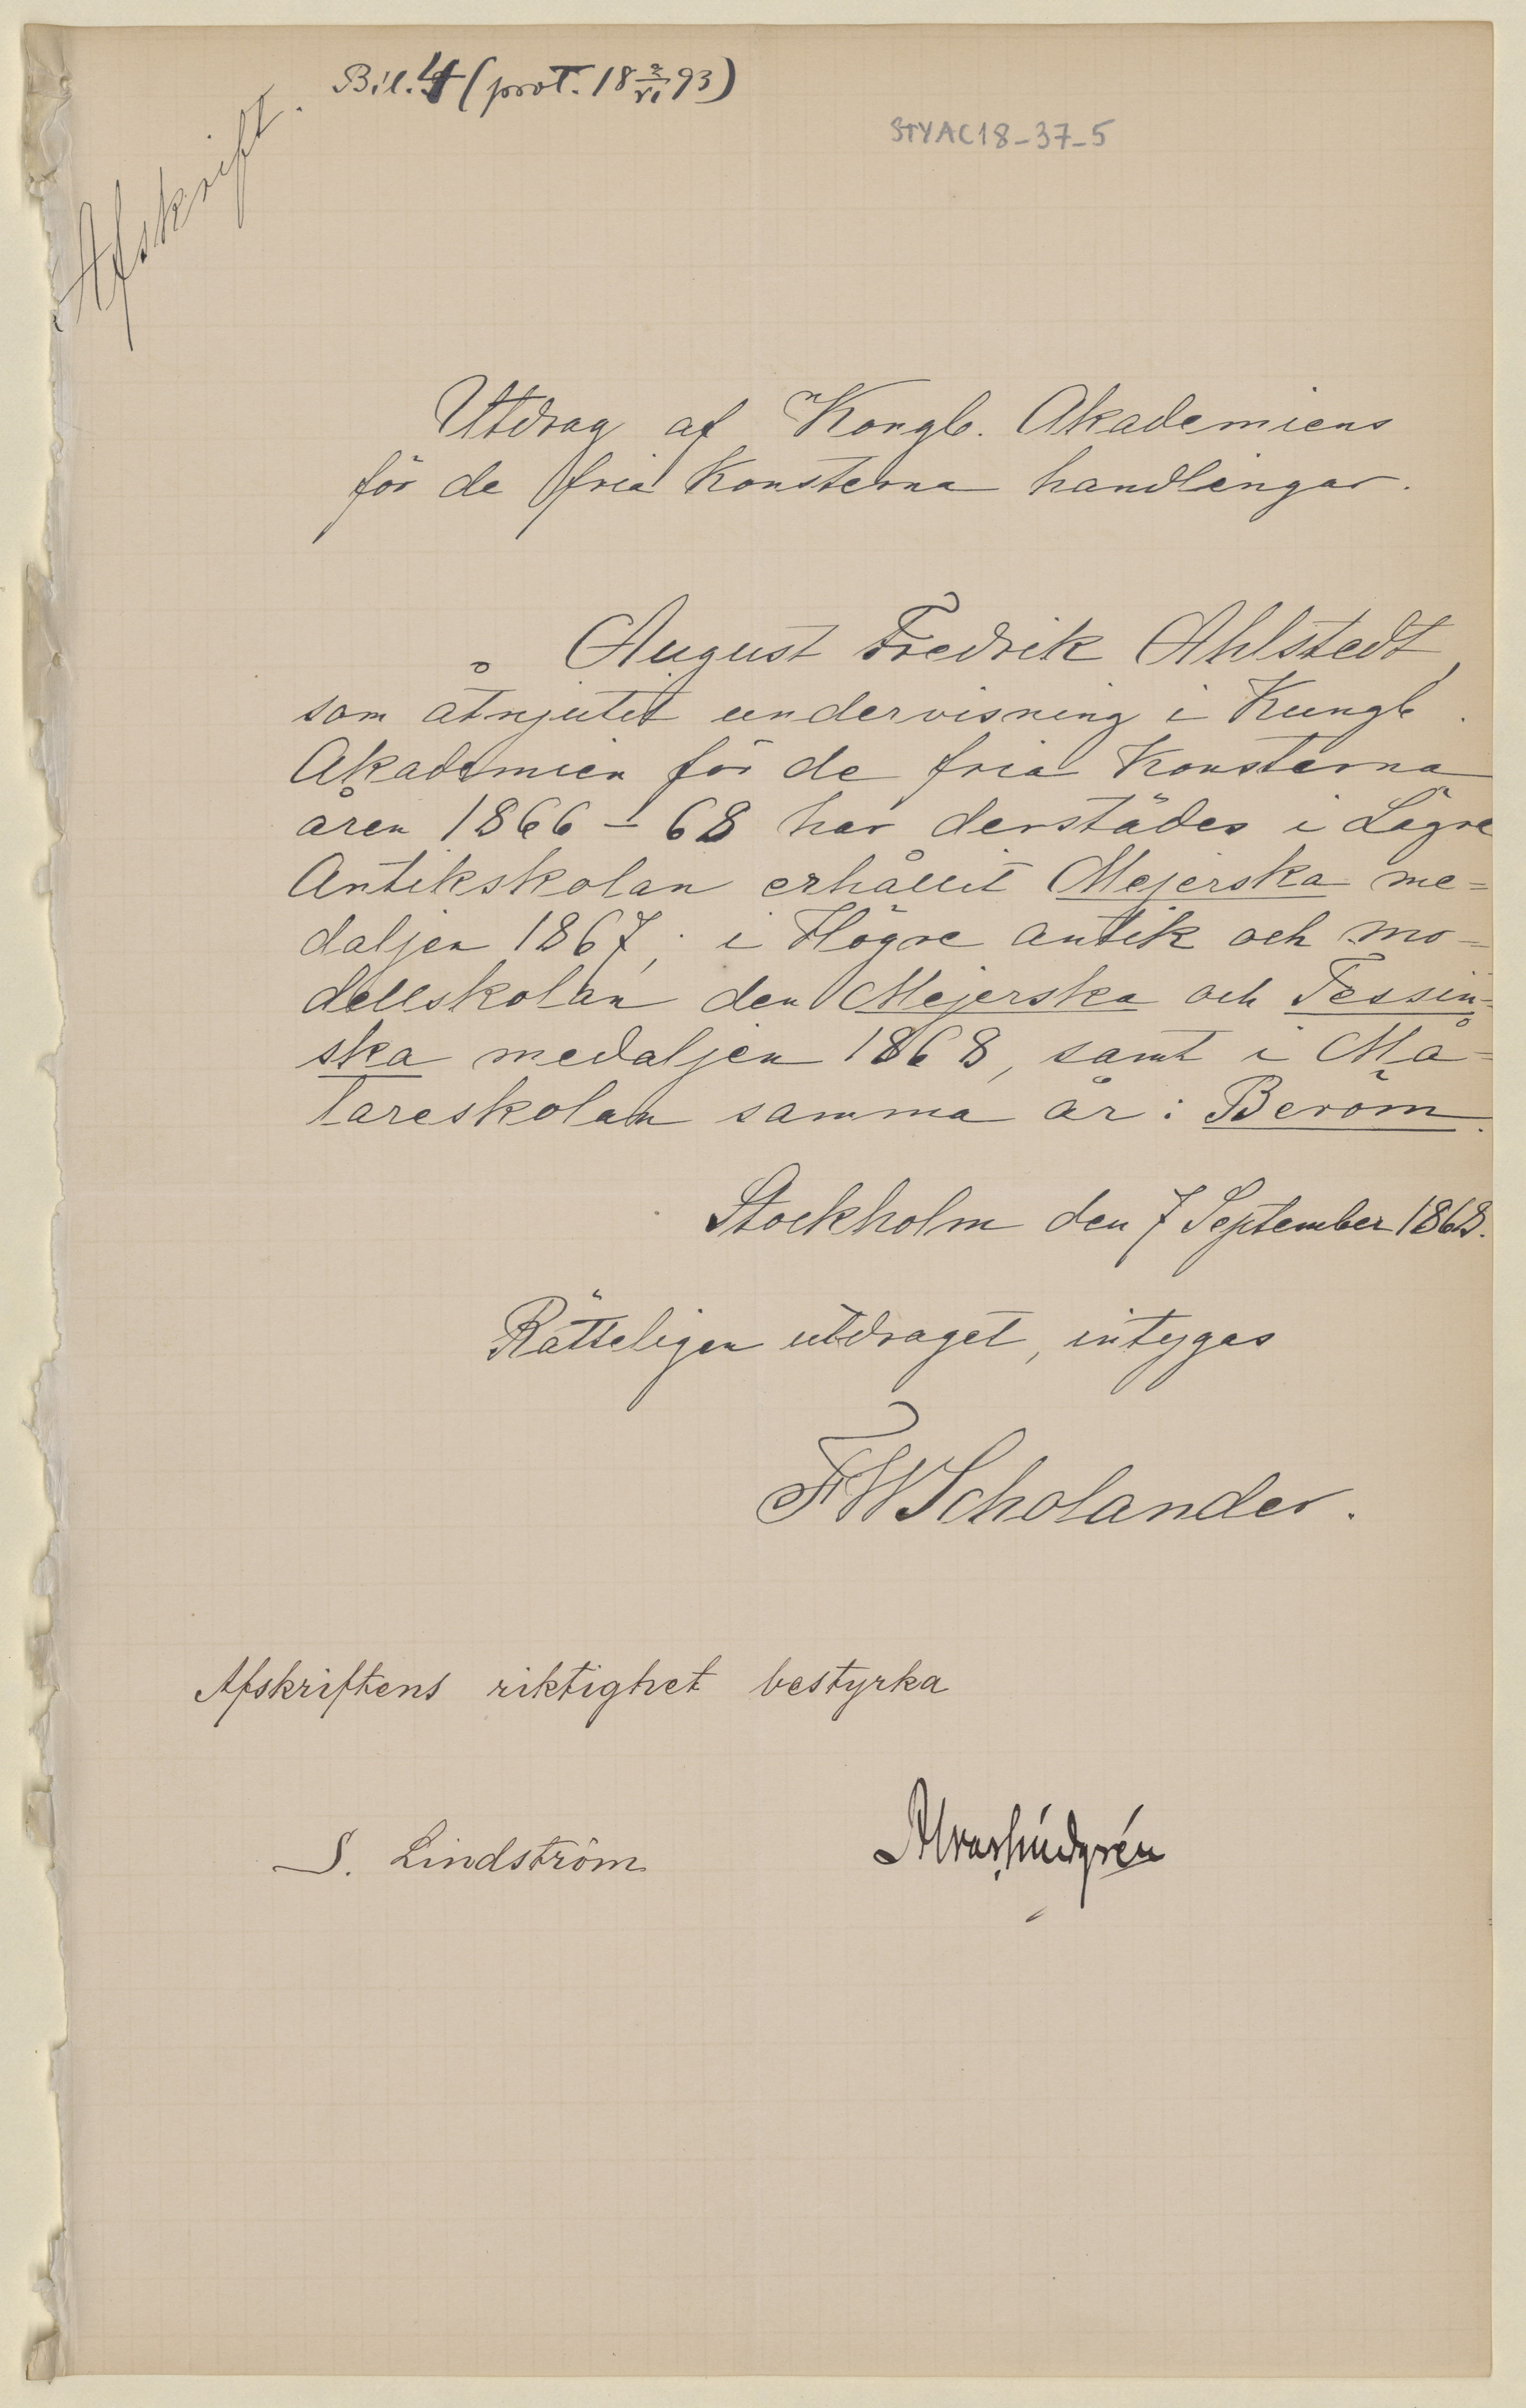 Bil. 4 (prot. 18 2/VI 93)
STYAC18-37-5
Afskrift.
Utdrag af Kongl. Akademiens
för de fria Konsterna handlingar.
August Fredrik Ahlstedt,
som åtnjutit undervisning i Kungl.
Akademien för de fria Konsterna
åren 1866–68 har derstädes i Lägre
Antikskolan erhållit Mejerska me=
daljen 1867; i Högre antik och mo=
dellskolan den Mejerska och Tessin=
ska medaljen 1868, samt i Må=
lareskolan samma år: Beröm.
Stockholm den 7 September 1868.
Rätteligen utdraget, intygas
FWScholander.
Afskriftens riktighet bestyrka
S. Lindström